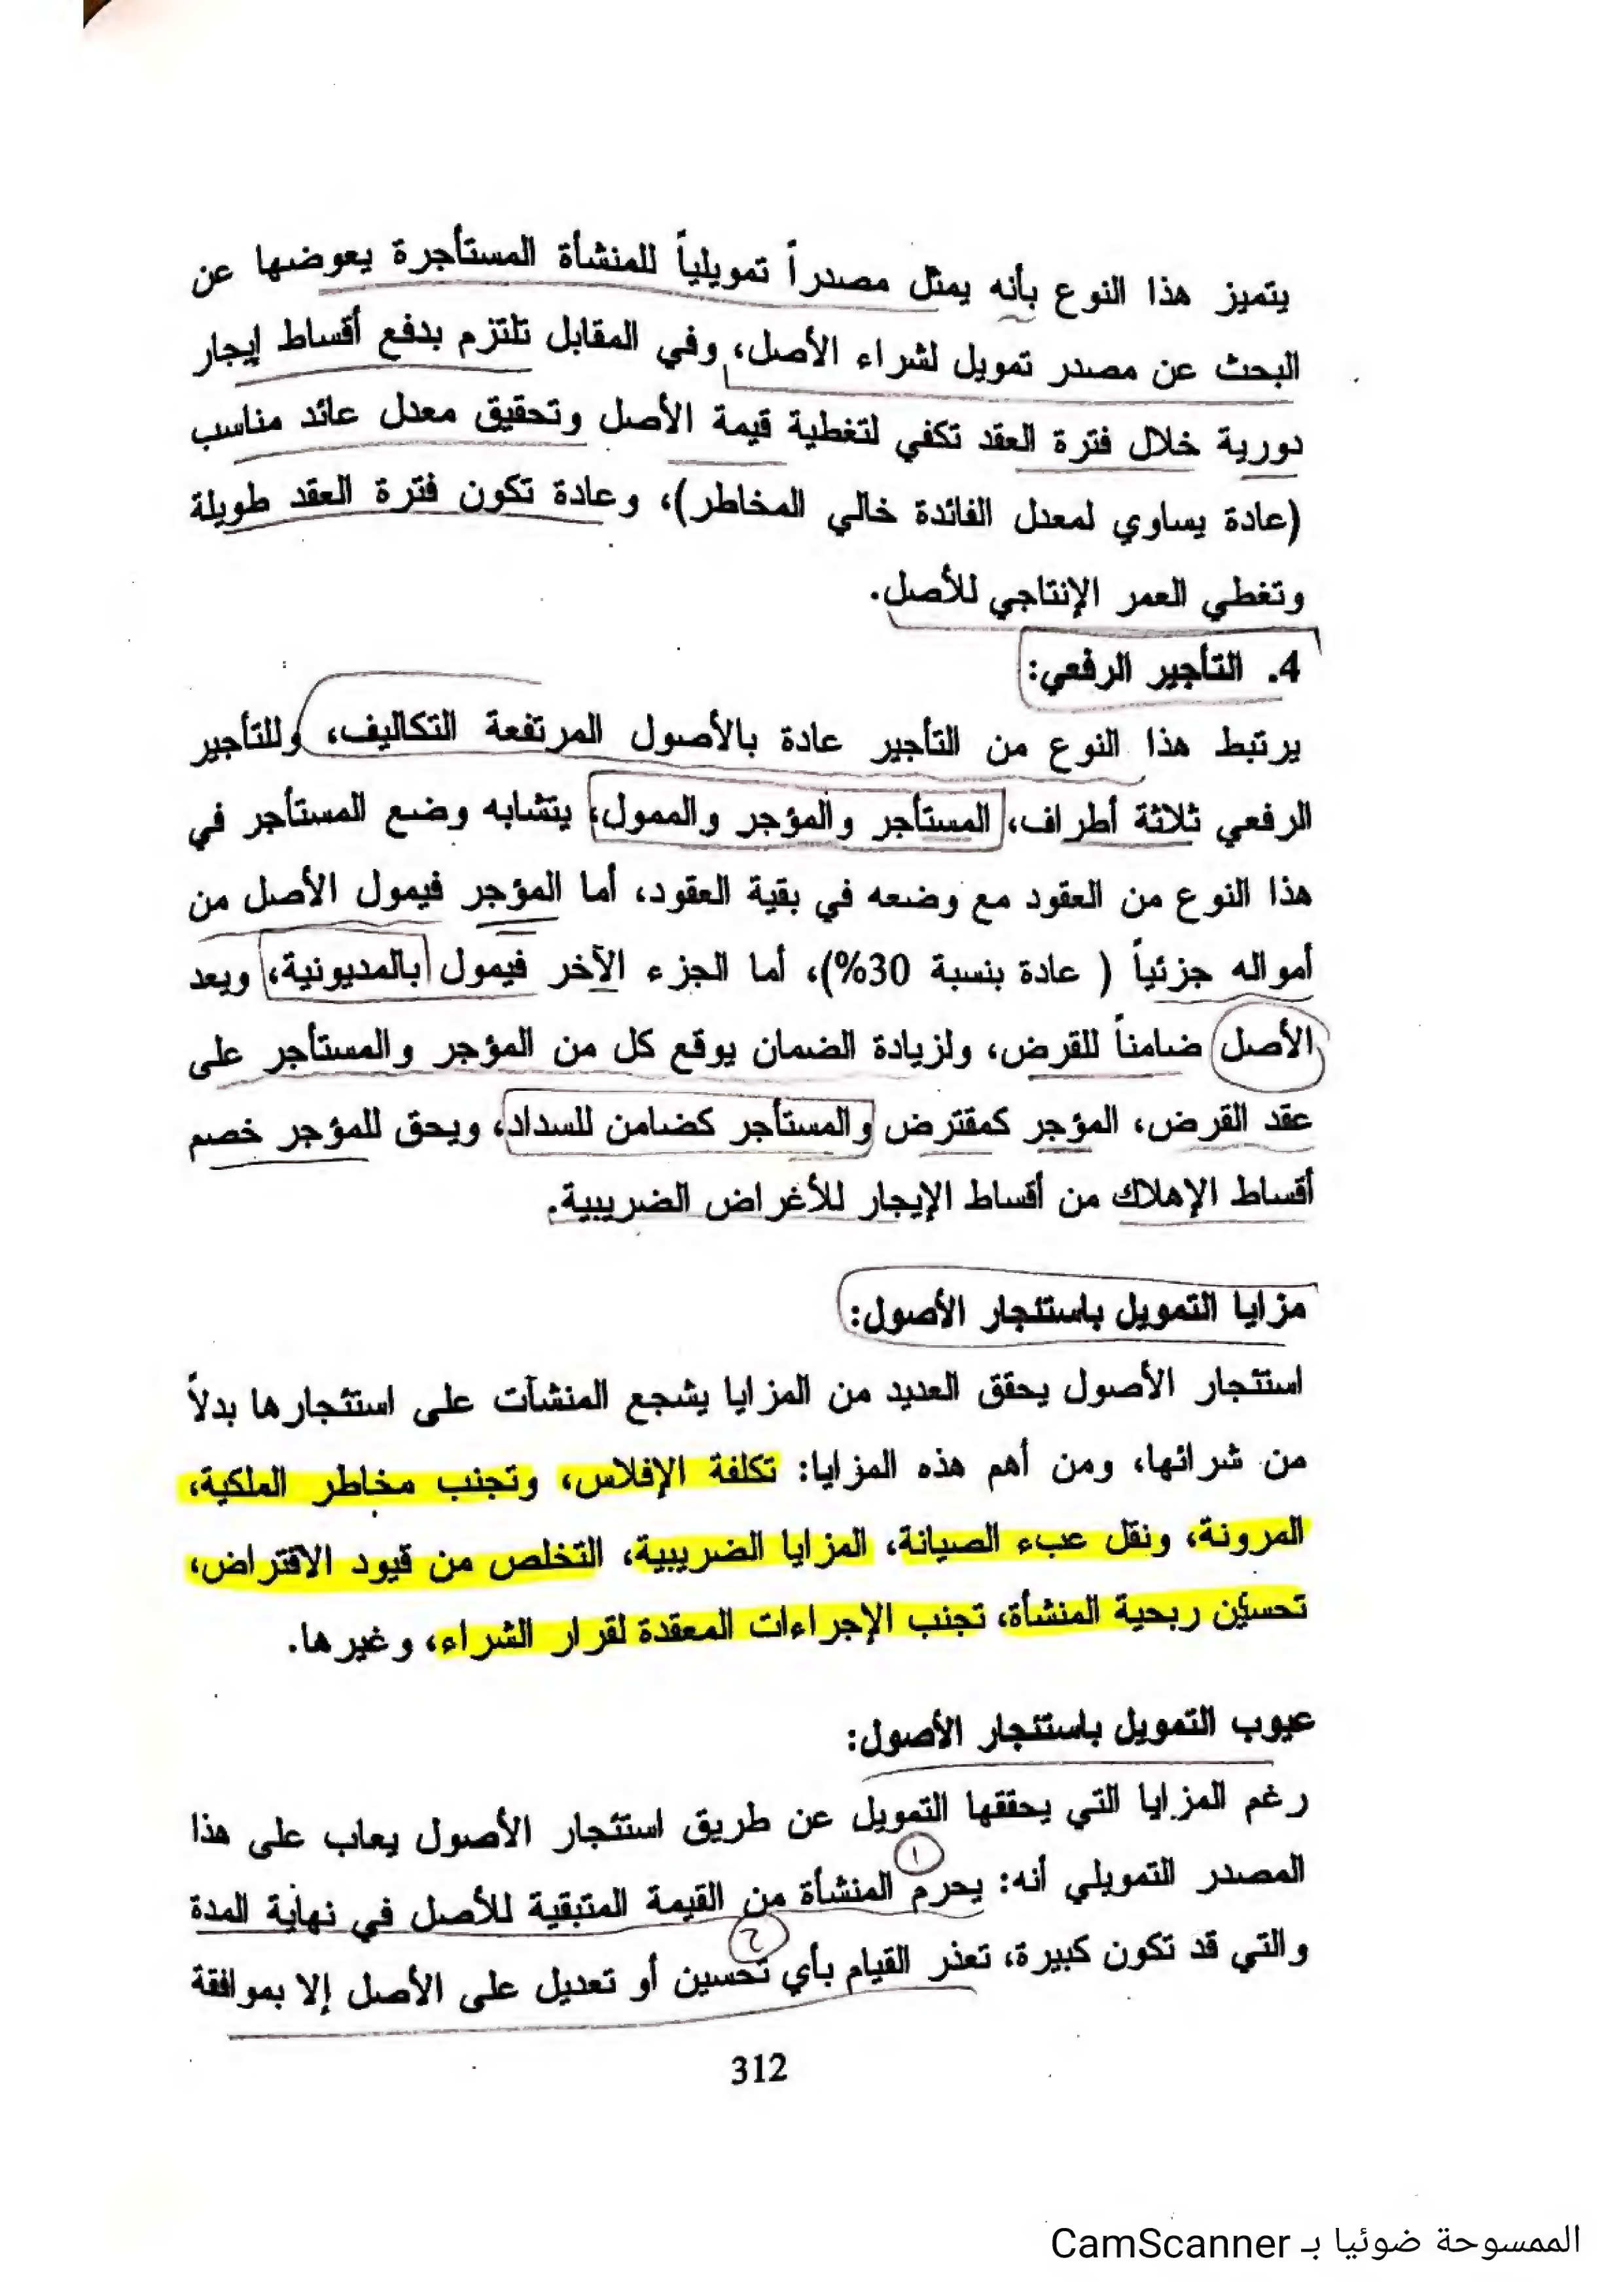 يتميز هذا النوع بأنه يمثل مصدراً تمويلياً للمنشأة المستأجرة يعوضها عن
البحث عن مصدر تمويل لشراء الأصل، وفي المقابل تلتزم بدفع أقساط إيجار
دورية خلال فترة العقد تكفي لتغطية قيمة الأصل وتحقيق معدل عائد مناسب
(عادة يساوي لمعدل الفائدة خالي المخاطر)، وعادة تكون فترة العقد طويلة
وتغطي العمر الإنتاجي للأصل.
4. التأجير الرفعي:
يرتبط هذا النوع من التأجير عادة بالأصول المرتفعة التكاليف، وللتأجير
الرفعي ثلاثة أطراف، المستأجر والمؤجر والممول، يتشابه وضع المستأجر في
هذا النوع من العقود مع وضعه في بقية العقود، أما المؤجر فيمول الأصل من
أمواله جزئياً ( عادة بنسبة 30%)، أما الجزء الآخر فيمول بالمديونية، ويعد
الأصل ضامناً للقرض، ولزيادة الضمان يوقع كل من المؤجر والمستأجر على
عقد القرض، المؤجر كمقترض والمستأجر كضامن للسداد، ويحق للمؤجر خصم
أقساط الإهلاك من أقساط الإيجار للأغراض الضريبية.
مزايا التمويل باستئجار الأصول:
استئجار الأصول يحقق العديد من المزايا يشجع المنشآت على استئجارها بدلاً
من شرائها، ومن أهم هذه المزايا: تكلفة الإفلاس، وتجنب مخاطر الملكية،
المرونة، ونقل عبء الصيانة، المزايا الضريبية، التخلص من قيود الاقتراض،
تحسين ربحية المنشأة، تجنب الإجراءات المعقدة لقرار الشراء، وغيرها.
عيوب التمويل باستئجار الأصول:
رغم المزايا التي يحققها التمويل عن طريق استئجار الأصول يعاب على هذا
١
المصدر التمويلي أنه: يحرم المنشأة من القيمة المتبقية للأصل في نهاية المدة
٢
والتي قد تكون كبيرة، تعذر القيام بأي تحسين أو تعديل على الأصل إلا بموافقة
312
الممسوحة ضوئيا بـ CamScanner